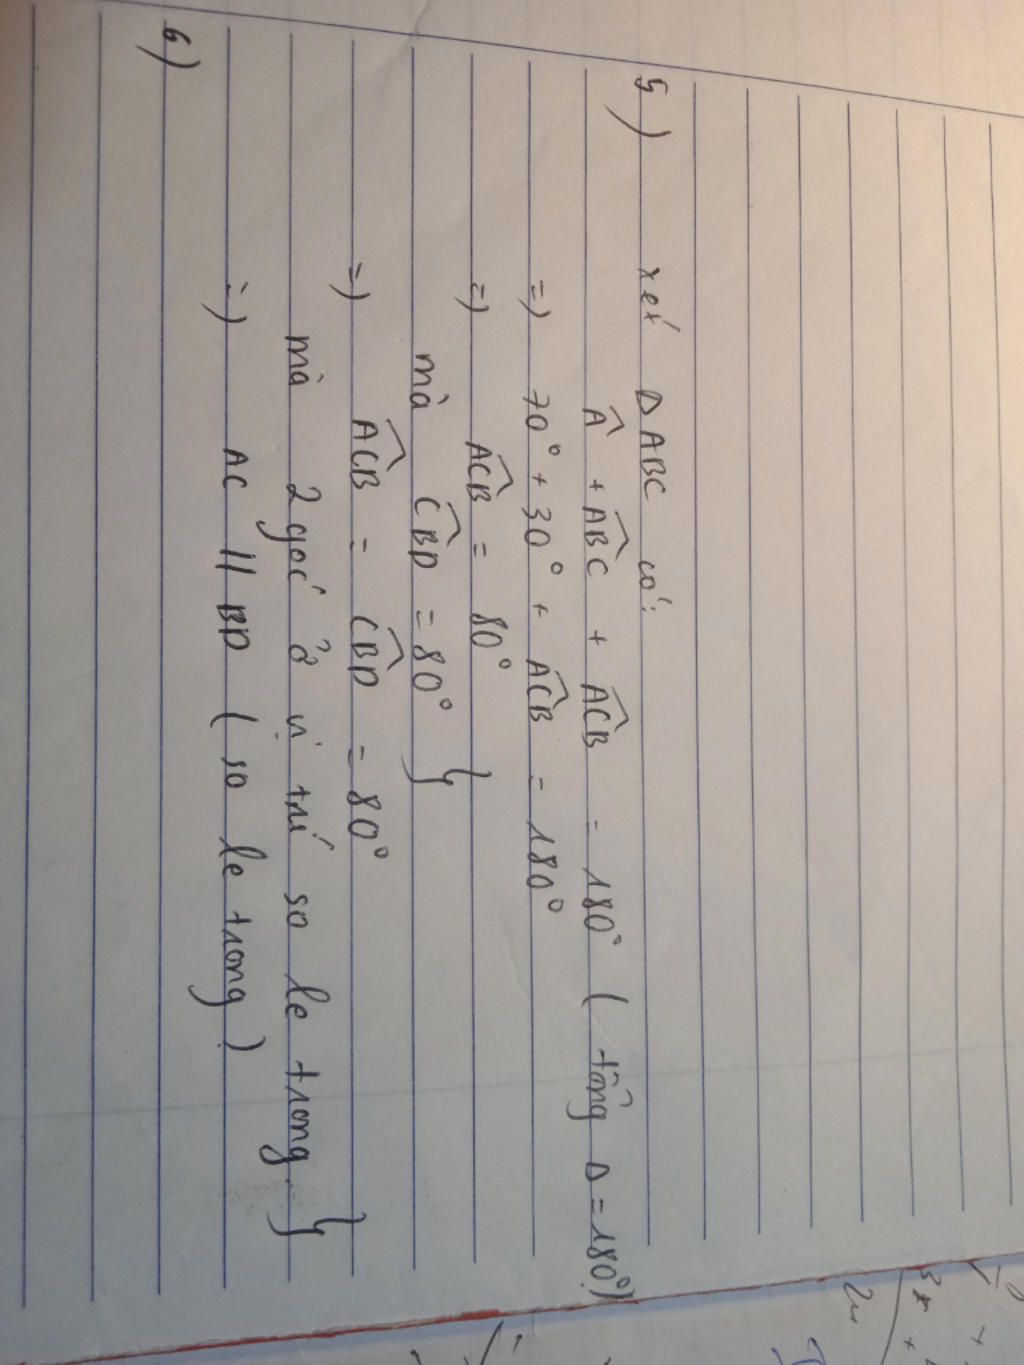 5) xét Δ ABC có:
Â + ABC̑ + ACB̑ = 180° (tổng Δ = 180°)
=) 70° + 30° + ACB̑ = 180°
=) ACB̑ = 80° }
mà CBD̑ = 80° }
=) ACB̑ = CBD̑ = 80°
mà 2 góc ở vị trí so le trong }
=) AC // BD ( so le trong )
6)